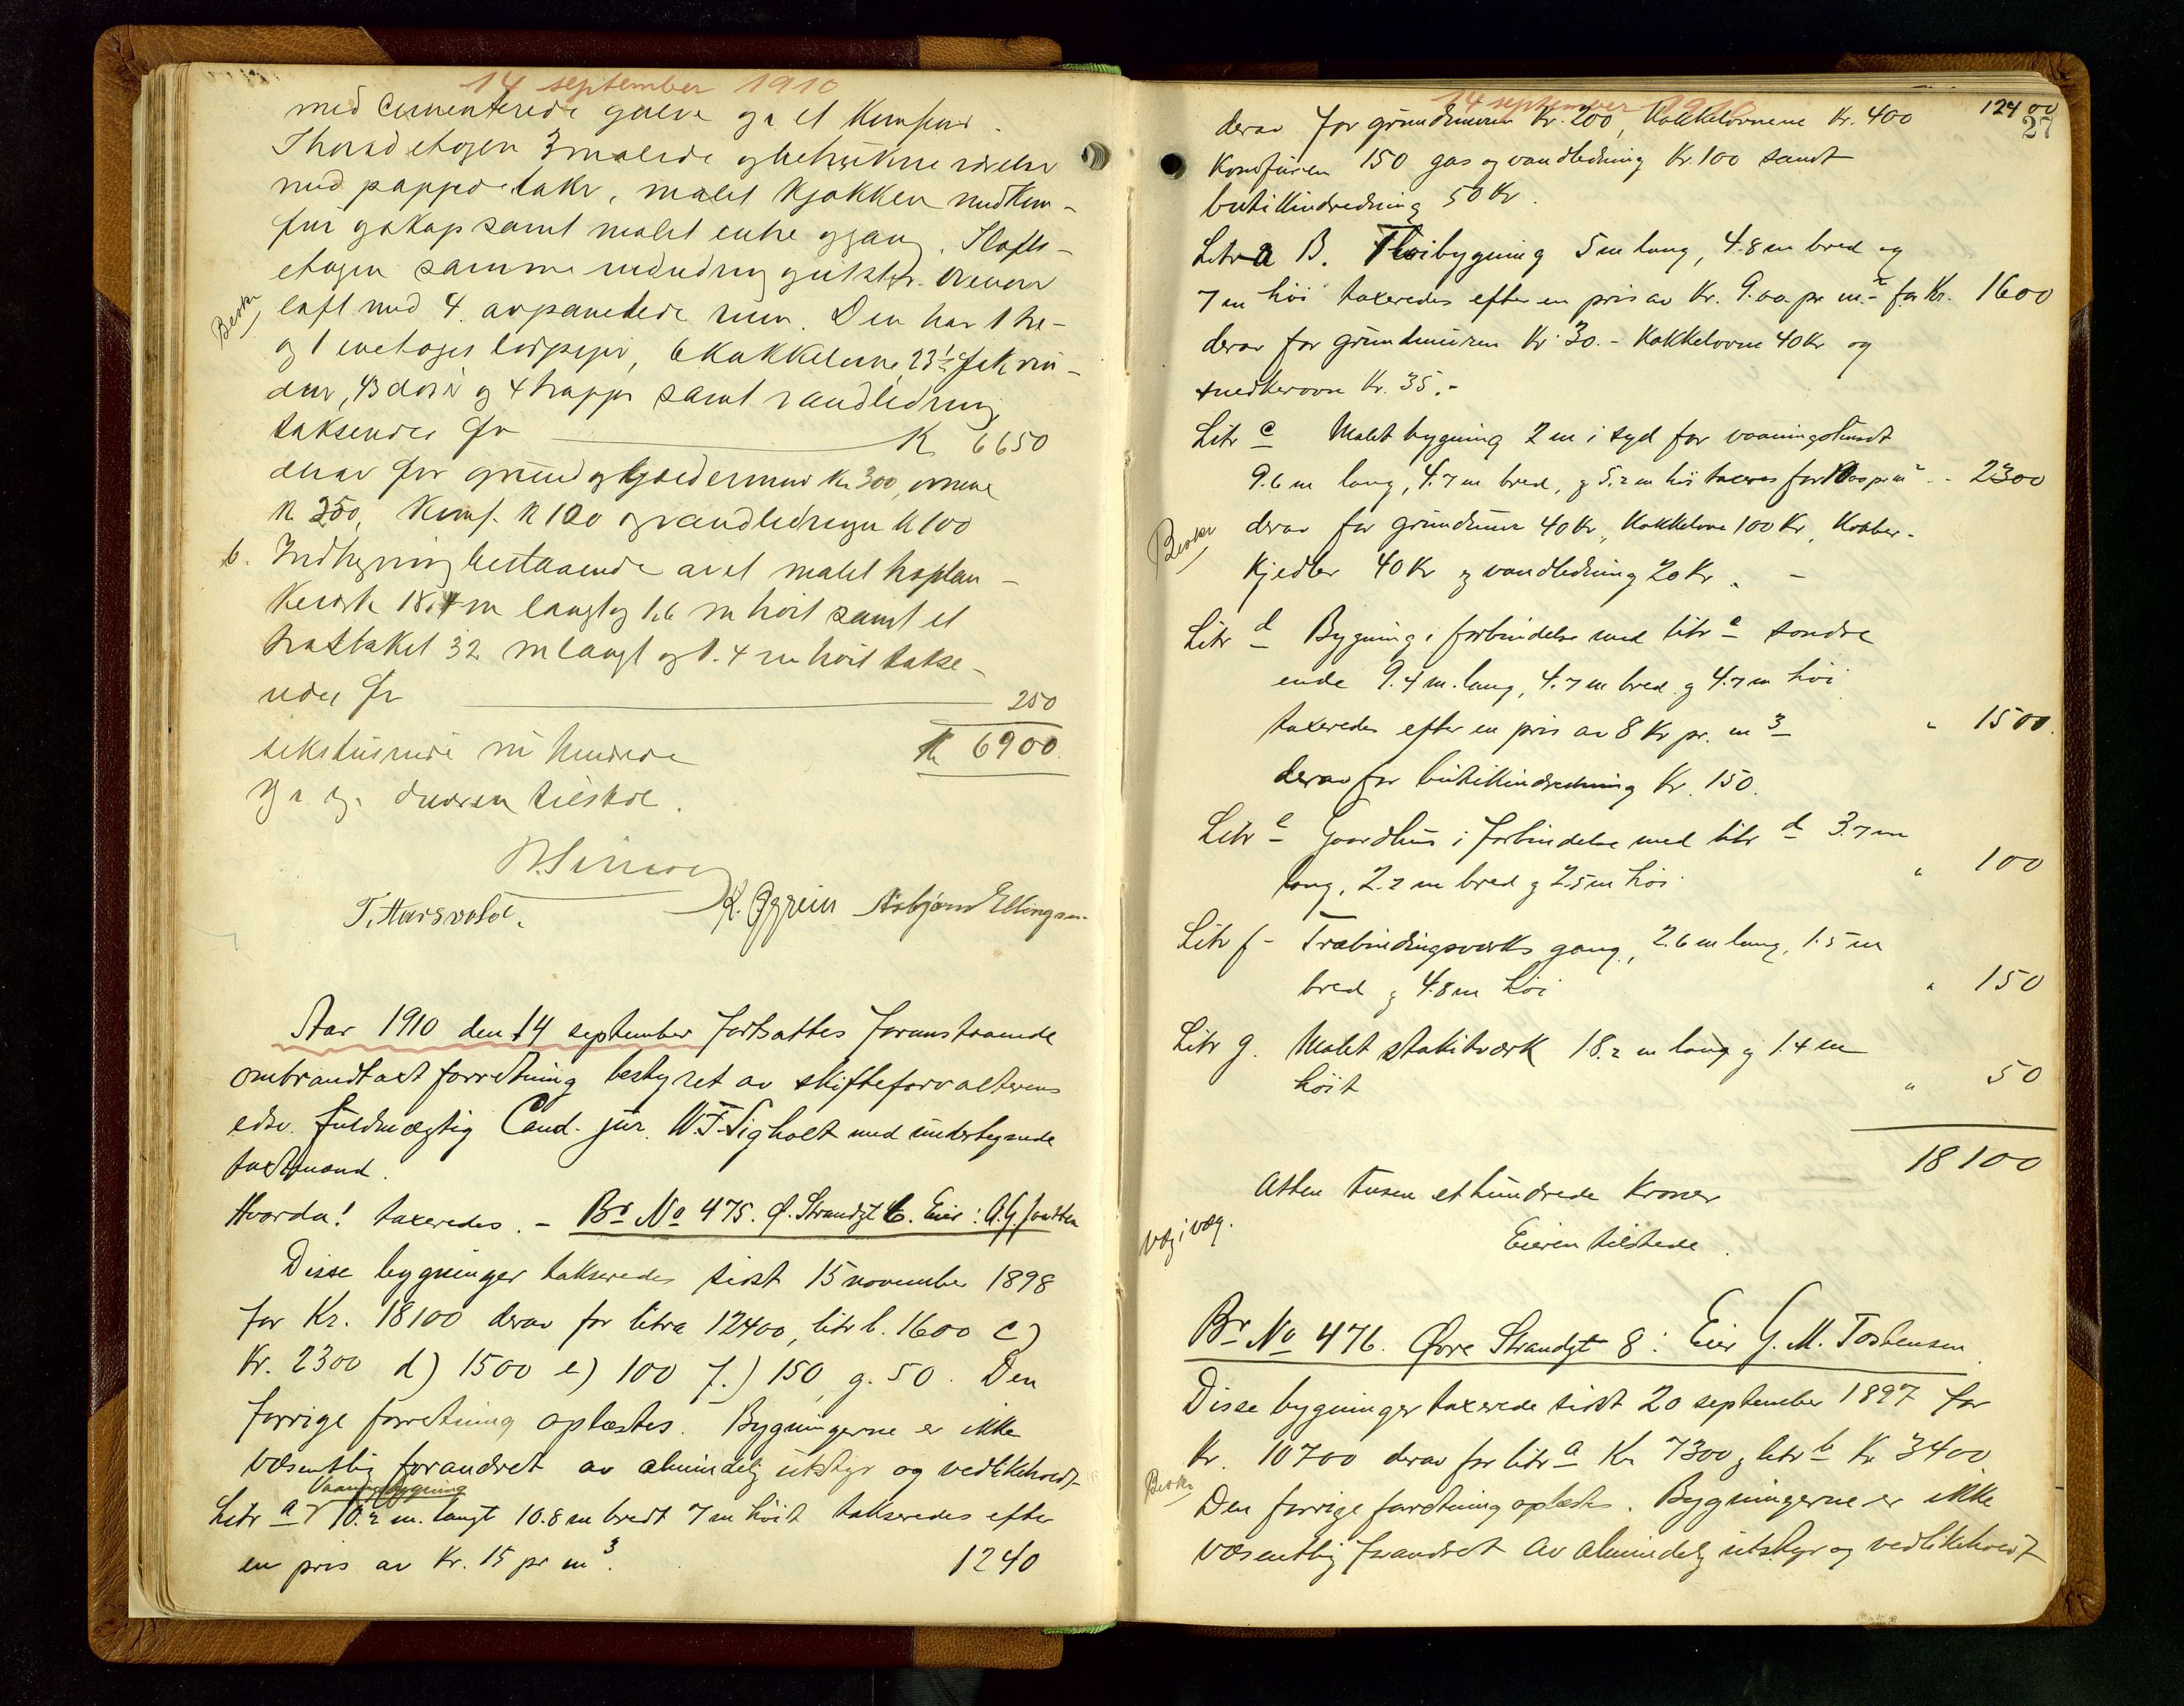 14 september 1910
med cementerede gulve og et Komfur.
I hovedetagen 3 malede og betrukne værelser
med pappede takr, malet Kjøkken med Kom-
fur og skap samt malet entre og gang. I lofts-
etagen samme indredning og utstyr. Ovenover
Besikr
loft med 4 avpanelede rum. Den har 1 to-
og 1 enetages lufpipe, 6 Kakkelovne, 23½ fak vin-
duer, 43 dører og 4 trapper samt vandledning
takseredes for K 6650
derav for grund og kjældermur Kr 300, ovnene
K 350, Komf. K 100 og vandledningen K 100
b. Indhegning bestaaende av et malet træplan-
keværk 18,4 m langt og 1,6 m høit samt et
træstaket 32 m langt og 1.4 m høit takse-
redes for 250
sekstusinde ni hundrede Kr 6900.
Eieren tilstede.
T. Aarsvold. K. Eggrein Asbjørn Ellingsen
Aar 1910 den 14 september fortsattes foranstaaende
ombrandtaxt forretning bestyret av skifteforvalterens
edsv. fuldmægtig Cand. jur. W. F. Sigholt med undertegnede
taxtmænd.
Hvorda! taxeredes. - Br No 475. Ø. Strandgt 6. Eier: A. G.
Disse bygninger takseredes sidst 15 november 1898
for Kr. 18100 derav for litra 12400, litr b. 1600 c)
Kr. 2300 d) 1500 e) 100 f.) 150, g. 50. Den
forrige forretning oplæstes. Bygningerne er ikke
væsentlig forandret av almindelig utstyr og vedlikeholdt
Vaaningsbygning
Litr a 10.2 m. langt 10.8 m bredt 7 m høit takseredes efter
en pris av Kr. 15 pr m3. 1240
14 september 1910
27
derav for grundmuren Kr. 200, Kakkelovnene Kr. 400 12400
Komfuren 150 gas og vandledning Kr. 100 samt
butikindredning 50 Kr.
Litra B. Tvibygning 5 m lang, 4.8 m bred og
7 m høi taxeredes efter en pris av Kr. 9.00 pr m.2 for Kr. 1600
derav for grundmuren Kr. 30.- Kakkelovne 40 Kr og
snedkerovn Kr. 35.-
Litr c Malet bygning 2 m i syd for vaaningshuset
9.6 m lang, 4.7 m bred, og 5.2 m høi taxeres for pr m2 - 2300
Besikr
derav for grundmur 40 Kr., Kakkelovne 100 Kr, Kobber-
kjedler 40 Kr og vandledning 20 Kr. -
Litr d Bygning i forbindelse med litr c søndre
ende 9.4 m. lang, 4.7 m bred og 4.7 m høi
taxeredes efter en pris av 8 Kr pr. m3 " 1500.
derav for butikindredning Kr. 150.
Litr e Gaardhus i forbindelse med litr d 3.7 m
lang, 2.2 m bred og 2.5 m høi " 100
Litr f - Træbindingsværks gang, 2.6 m lang, 1.5 m
bred og 4.8 m høi " 150
Litr g. Malet stakitværk 18.2 m lang og 1.4 m
høit " 50
18100
Atten tusen et hundrede Kroner
væg i væg.
Eieren tilstede.
Br No 476. Øvre Strandgt 8: Eier G. M. Torbensen
Disse bygninger taxerede sidst 20 september 1897 for
Kr. 10700 derav for litr a Kr 7300 og litr b Kr 3400
Besikr
Den forrige forretning oplæstes. Bygningerne er ikke
væsentlig forandret av almindelig utstyr og vedlikeholdt